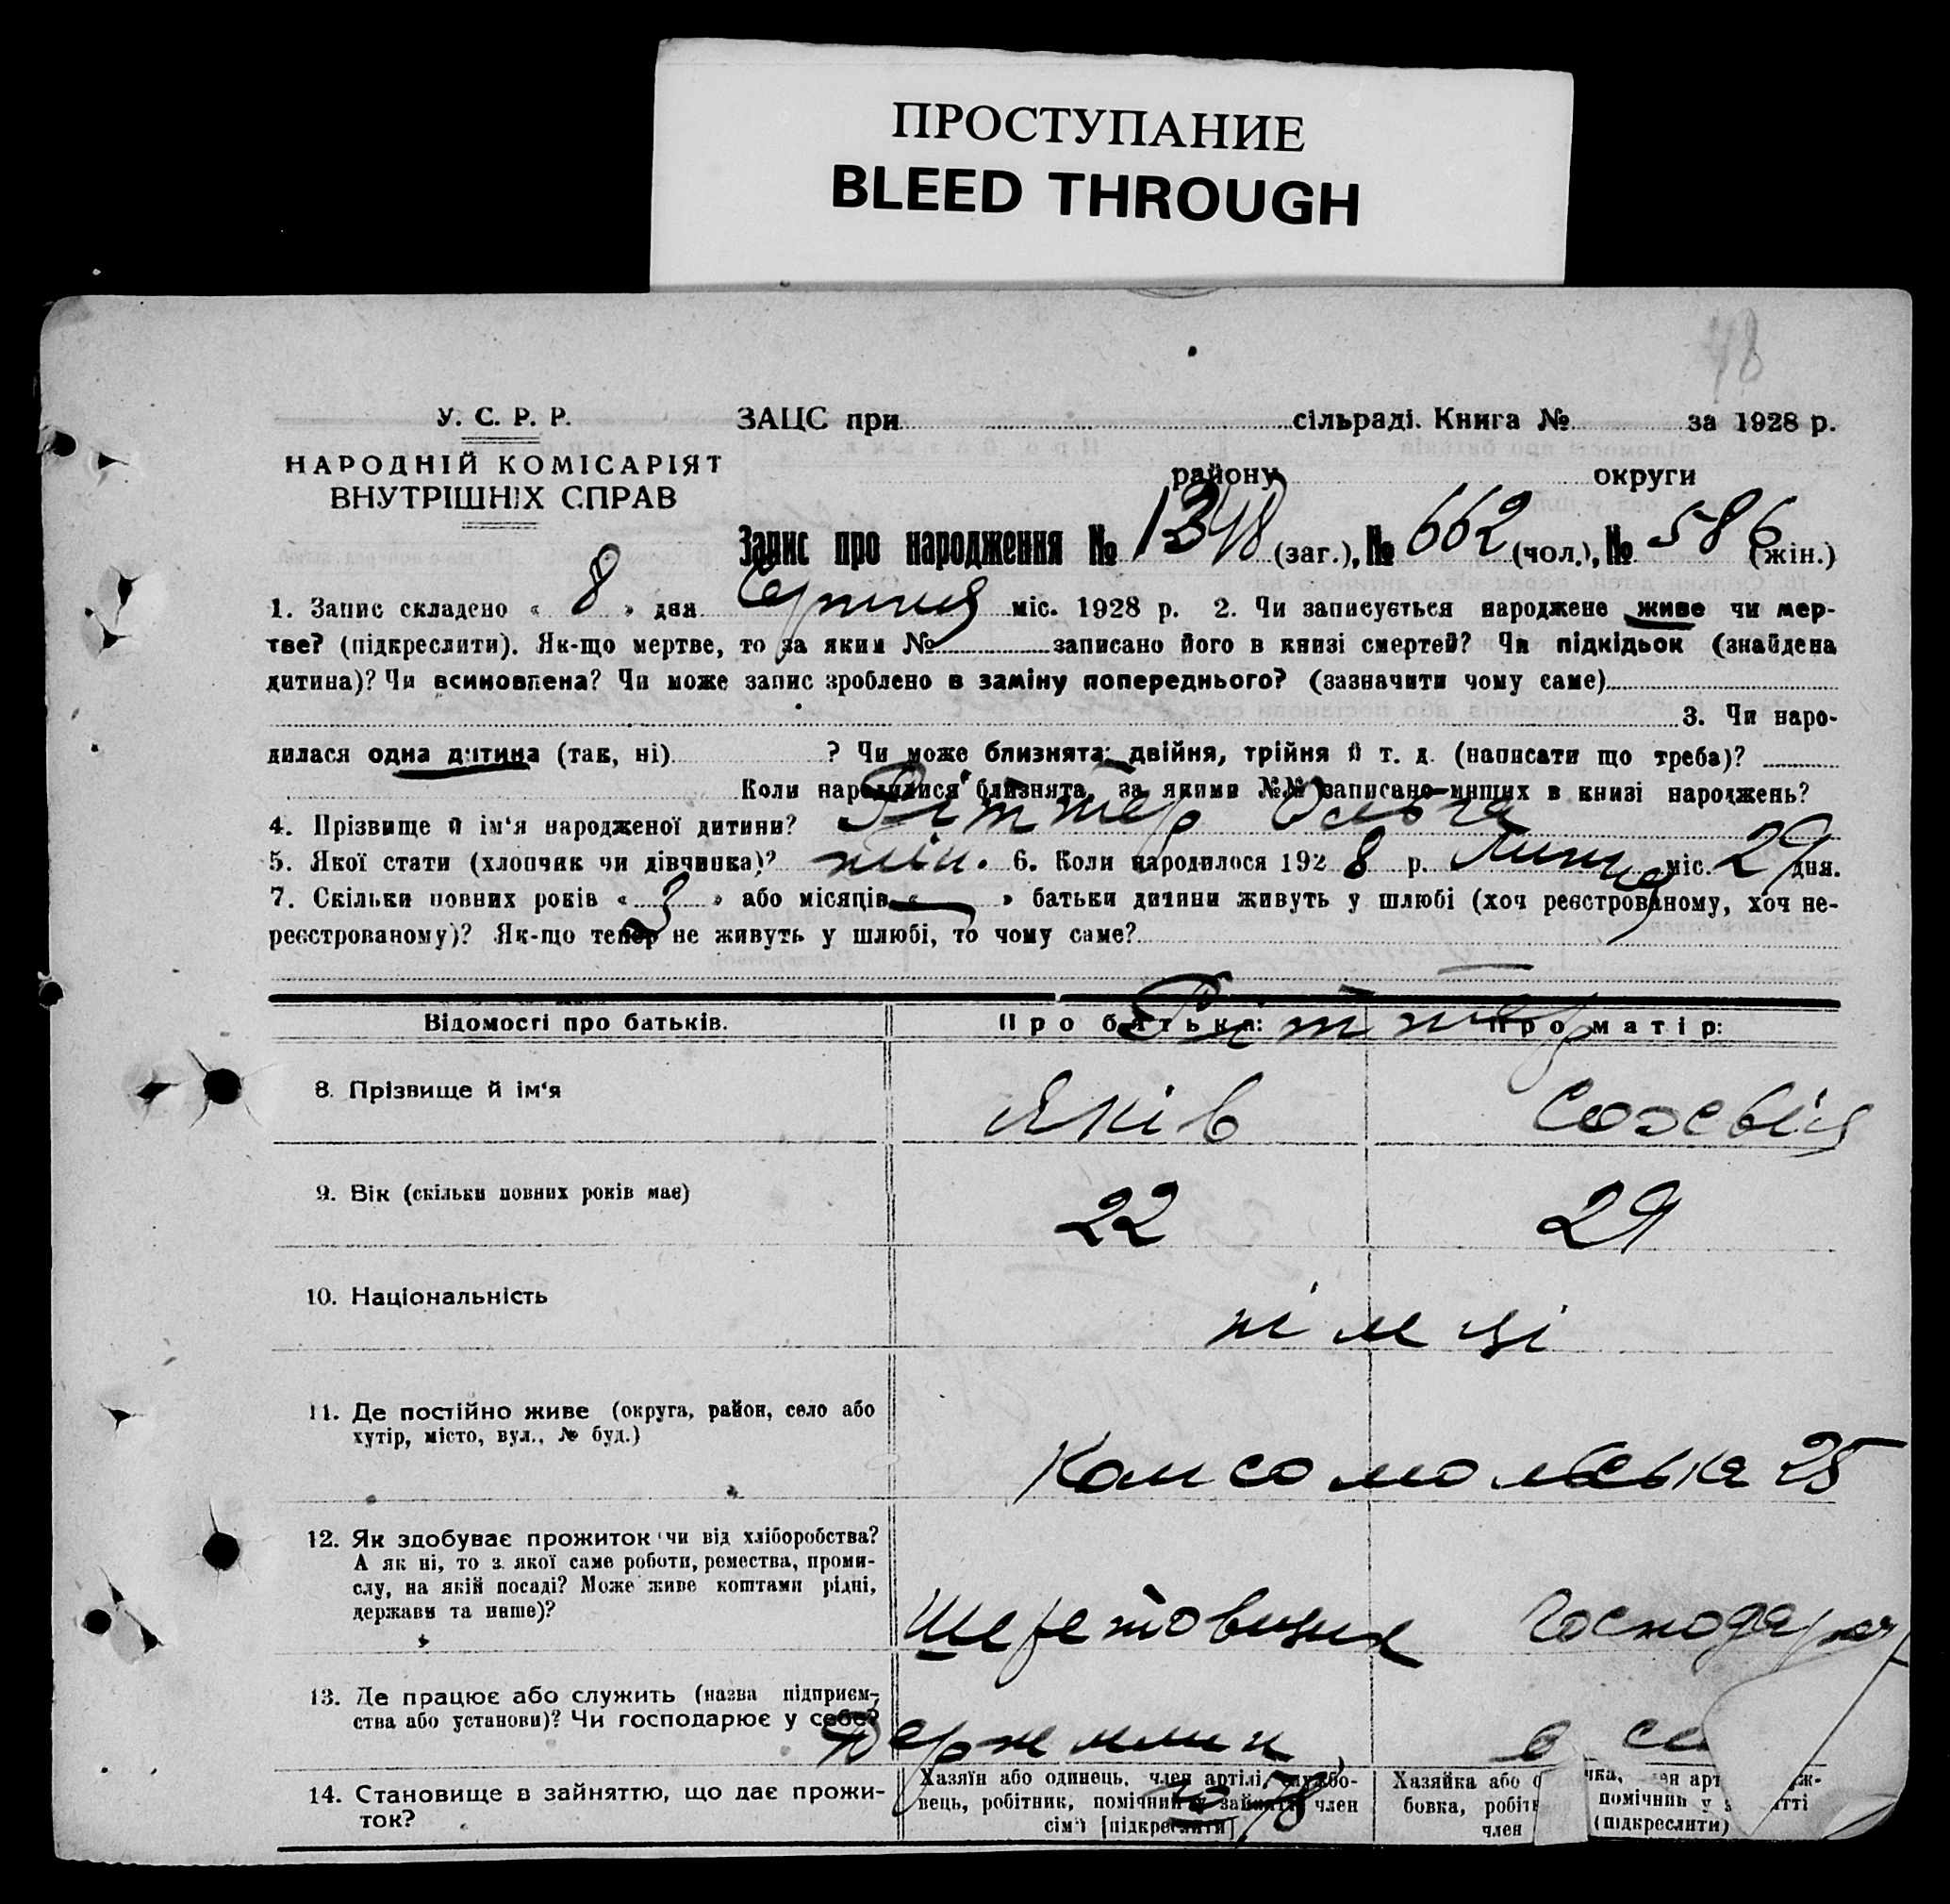 ПРОСТУПАНИЕ
BLEED THROUGH
48
У. С. Р. Р.
НАРОДНІЙ КОМІСАРІЯТ
ВНУТРІШНІХ СПРАВ
ЗАЦС при сільраді. Книга № за 1928 р.
району округи
Запис про народження № 1348 (заг.), № 662 (чол.), № 586 (жін.)
1. Запис складено « 8 » дня Серпня міс. 1928 р. 2. Чи записується народжене живе чи мер-
тве? (підкреслити). Як-що мертве, то за яким № записано його в книзі смертей? Чи підкідьок (знайдена
дитина)? Чи всиновлена? Чи може запис зроблено в заміну попереднього? (зазначити чому саме)
3. Чи наро-
дилася одна дитина (так, ні) ? Чи може близнята: двійня, трійня й т. д. (написати що треба)?
Коли народилися близнята, за якими №№ записано инших в книзі народжень?
4. Прізвище й ім‘я народженої дитини? Ріттер Ольга
5. Якої стати (хлопчик чи дівчинка)? жін. 6. Коли народилося 1928 р. Липня міс. 29 дня.
7. Скільки повних років « 3 » або місяців « — » батьки дитини живуть у шлюбі (хоч реєстрованому, хоч не-
реєстрованому)? Як-що тепер не живуть у шлюбі, то чому саме?
Відомості про батьків. Про батька: Про матір:
Ріттер
8. Прізвище й ім‘я Яків
9. Вік (скільки повних років має) 22 29
10. Національність німці
11. Де постійно живе (округа, район, село або
хутір, місто, вул., № буд.)
Комсомольська 25
12. Як здобуває прожиток чи від хліборобства?
А як ні, то з якої саме роботи, ремества, проми-
слу, на якій посаді? Може живе коштами рідні,
держави та инше)?
13. Де працює або служить (назва підприєм-
ства або установи)? Чи господарює у себе?
Держмлин
14. Становище в зайняттю, що дає прожи-
ток?
Хазяїн або одинець, член артілі, службо-
вець, робітник, помічний в зайнятті член
сім‘ї [підкреслити]
Хазяйка або
бовка,
член
помічний у
(підкреслити)